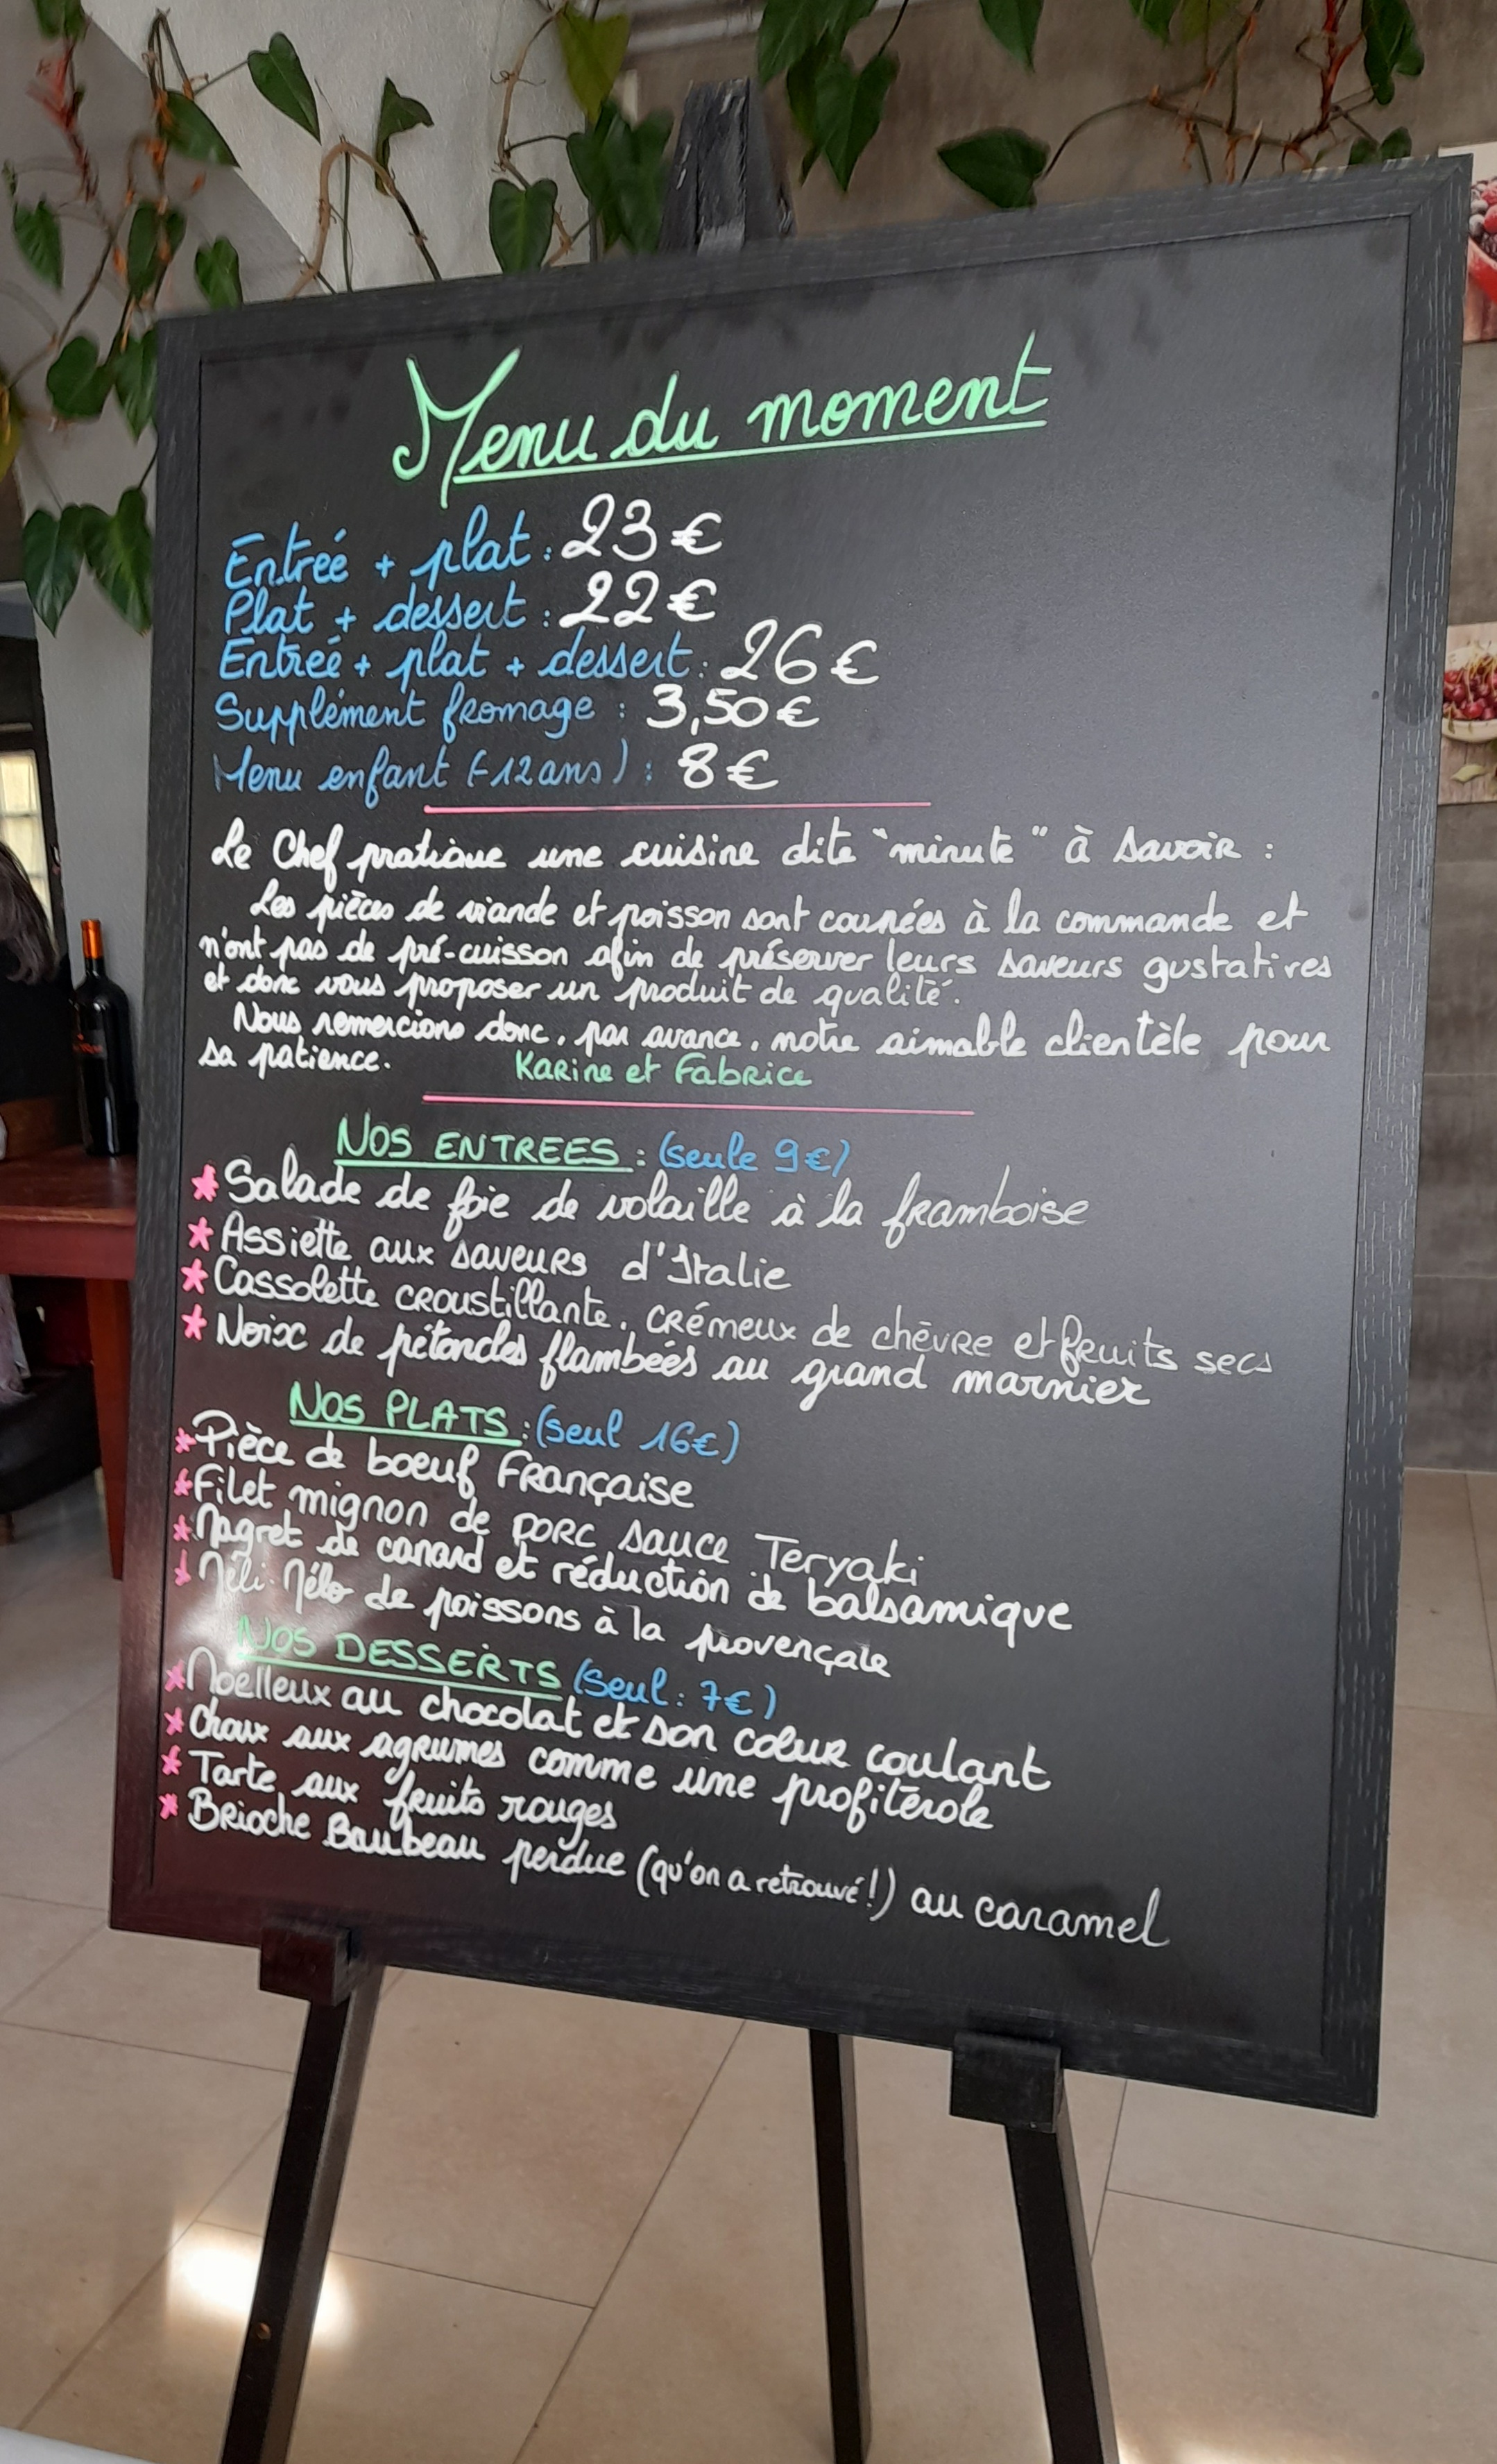 Menu du moment
Entrée + plat : 23€
Plat + dessert : 22€
Entrée + plat + dessert : 26€
Supplément fromage : 3,50€
Menu enfant (-12 ans) : 8€
Le Chef pratique une cuisine dite "minute" à savoir :
Les pièces de viande et poisson sont coupées à la commande et
n'ont pas de pré-cuisson afin de préserver leurs saveurs gustatives
et donc vous proposer un produit de qualité.
Nous remercions donc, par avance, notre aimable clientèle pour
sa patience. Karine et Fabrice
NOS ENTREES : (seule 9€)
* Salade de foie de volaille à la framboise
* Assiette aux saveurs d'Italie
* Cassolette croustillante, crémeux de chèvre et fruits secs
* Noix de pétoncles flambées au grand marnier
NOS PLATS : (seul 16€)
* Pièce de boeuf Française
* Filet mignon de porc sauce Teryaki
* Magret de canard et réduction de balsamique
* Méli-Mélo de poissons à la provençale
NOS DESSERTS (seul : 7€)
* Moelleux au chocolat et son coeur coulant
* Choux aux agrumes comme une profiterole
* Tarte aux fruits rouges
* Brioche Baubeau perdue (qu'on a retrouvé !) au caramel